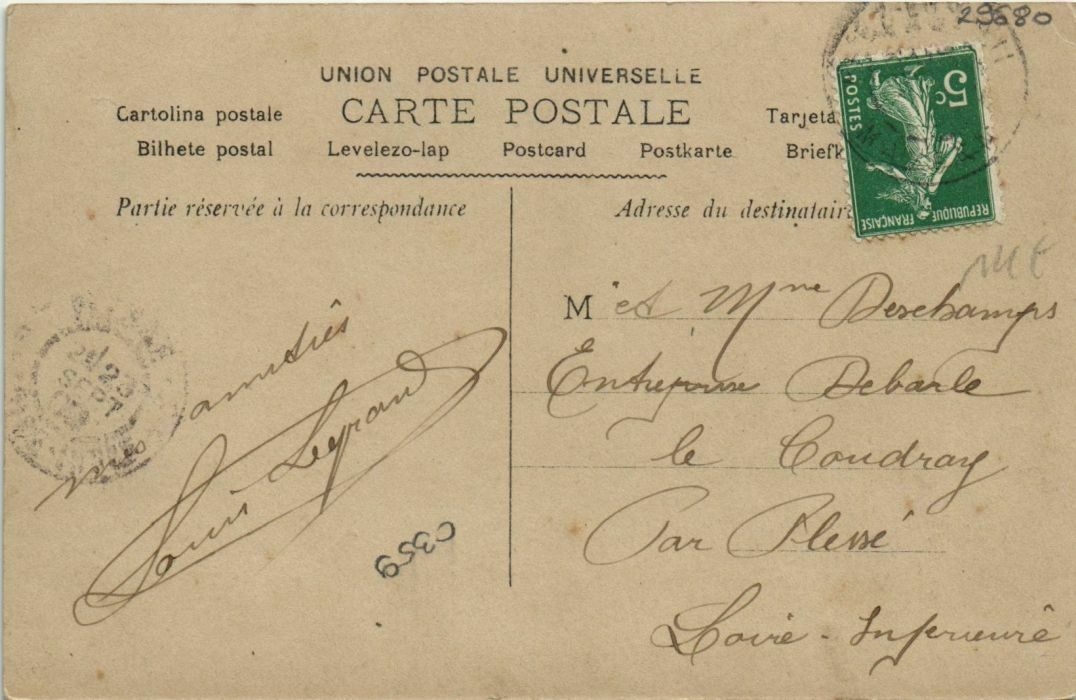 29680
UNION POSTALE UNIVERSELLE
CARTE POSTALE
Cartolina postale Tarjeta
Bilhete postal Levelezo-lap Postcard Postkarte Briefk
5c
POSTES
REPUBLIQUE FRANÇAISE
Partie réservée à la correspondance
Adresse du destinataire
mes amitiés
Louis Legrand
23
SEPT
C359
M et Mme Deschamps
Entreprise Debarle
le Coudray
Par Plessé
Loire-Inferieure